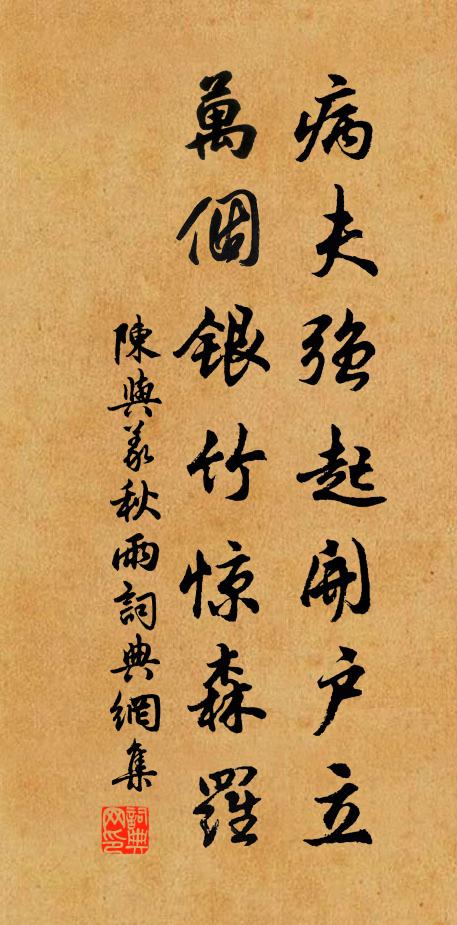 病夫强起開户立
萬個銀竹惊森羅
陳與義秋雨詞典網集
詞典网印